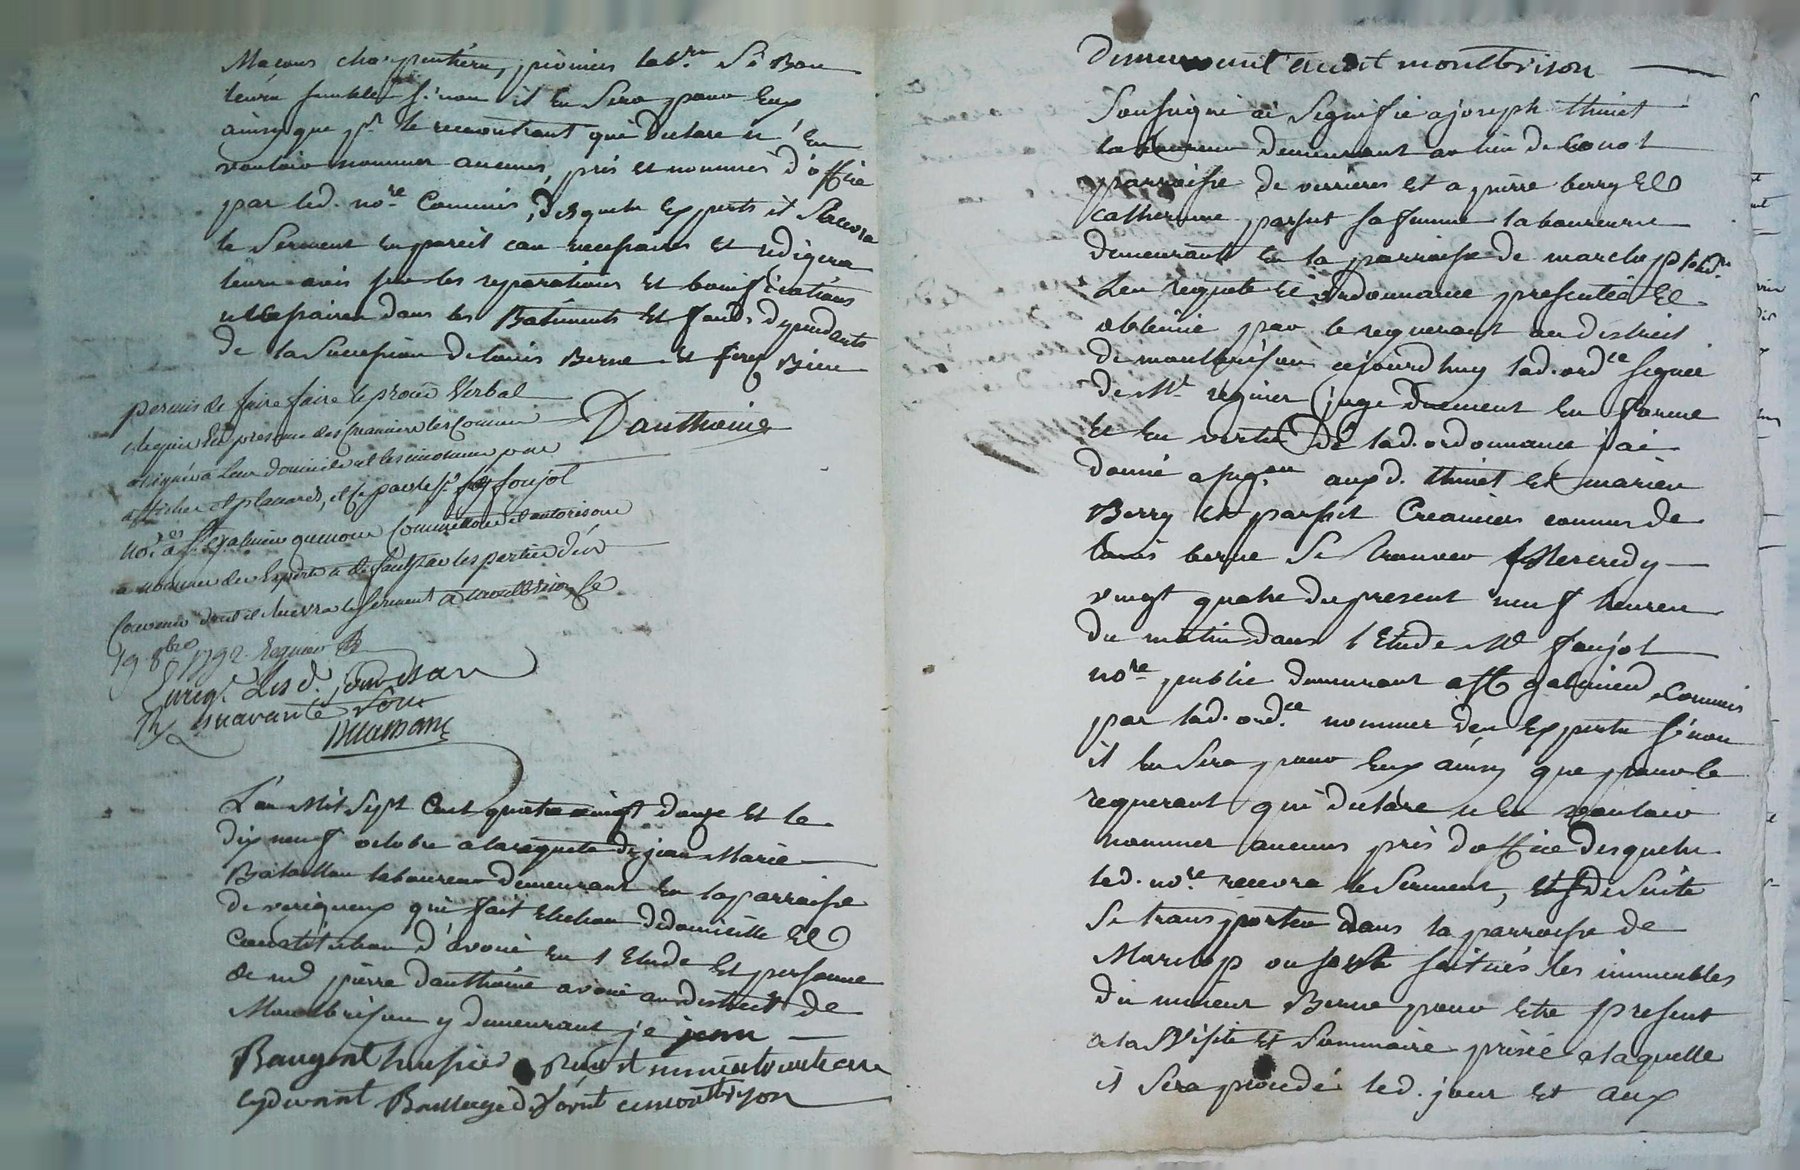 Macons charpentiers, pioniers lab.rs Si Bon
leur semble sinon il en sera pour Eux
ainsy que p.r le remontrant qui declare n'En
vouloir nommer aucuns, pris et nommés d'office
par led. no.re Commis, desquels Experts il Recevra
le Serment en pareil cas necessaire et redigera
leurs avis sur les reparations et bonifications
necessaires dans les Batiments et fonds dependants
de la Succession de Louis Berne et ferez Bien
Dauthoine
permis de faire faire le procès Verbal
requis En presence des Creanciers Connus
assignés a Leur domicile et les inconnus par
affiches et placards, et ce pardevant foujol
no.re a s.t galmier que nous Commettons et autorisons
a nommer des Experts a defaut par les parties d'en
Convenir dont il recevra le serment a montbrison ce
19 8bre 1792. Regnier
Enreg. Les d. jour et an
quarante sous
L'an Mil Sept Cent quatre vingt douze Et le
dix neuf octobre a la requete de jean Marie
Bataillon laboureur demeurant En la parroisse
de verigneux qui fait Election de domicille Et
Constitution d'avoué en l'Etude Et personne
de m.e pierre Dauthoine avoué au district de
Montbrison y demeurant je jean
Baugont huissier
cydevant Bailliage de foret a montbrison
Demeurant audit montbrison
Soussigné ai Signifié a joseph thinet
laboureur demeurant au lieu de Conol
parroisse de verrieres Et a pierre berry Et
Catherine parfut sa femme laboureurs
demeurants En la parroisse de marclop
Les requete Et ordonnance presentée Et
obtenüe par le requerant au district
de montbrison cejourd'huy lad. ord.ce Signée
de M.r regnier juge duement En forme
Et En vertu De lad. ordonnance j'ai
donné assig.on auxd. thinet Et mariés
Berry Et parfut Creanciers connus de
louis berne de se trouver Mercredy
vingt quatre du present neuf heures
du matin dans l'Etude M.e foujol
no.re public demeurant a S.t galmier Commis
par lad. ord.ce nommer des Experts sinon
il En Sera pour Eux ainsy que pour le
requerant qui declare n'En vouloir
nommer aucuns pris d'office desquels
led. no.re recevra le Serment, Et de Suite
Se transporter dans la parroisse de
Marclop ou sont situés les immeubles
du mineur Berne pour Etre present
a la Visite Et Sommaire prisée a laquelle
il Sera procedé led. jour Et aux